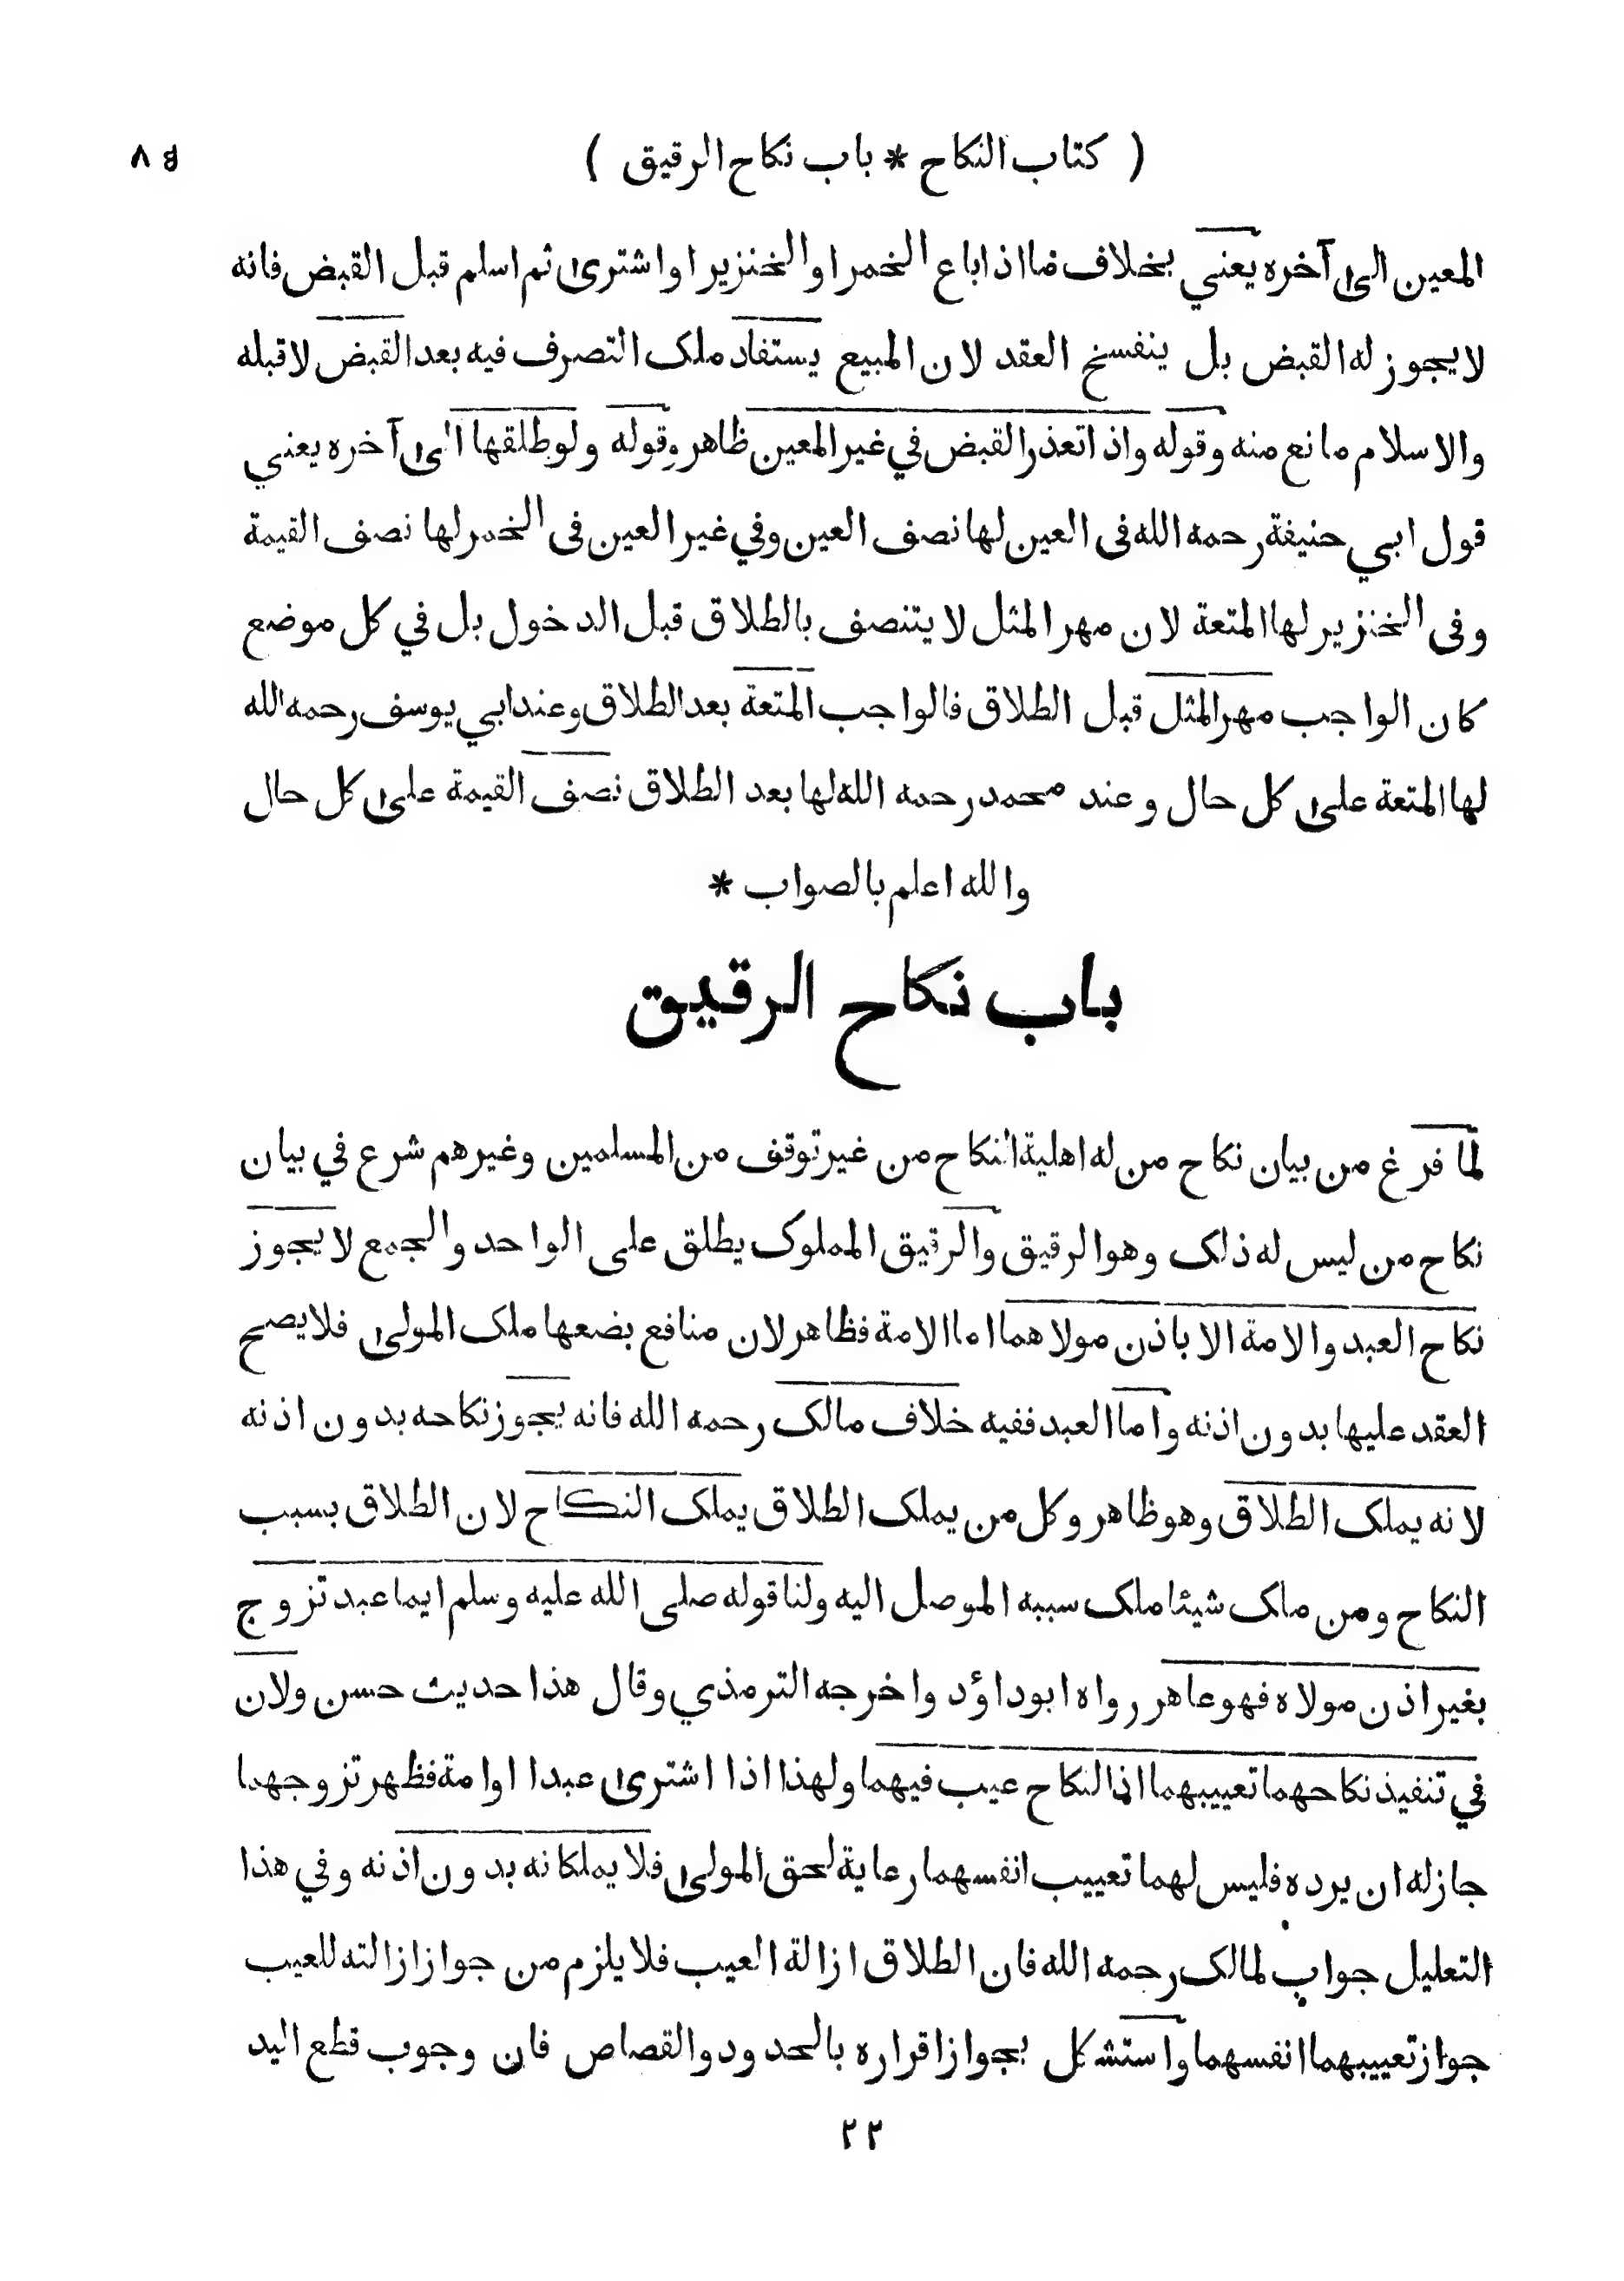 ( كتاب النكاح * باب نكاح الرقيق )
المعين الى آخره يعني بخلاف ما اذا باع الخمر او الخنزير او اشترى ثم اسلم قبل القبض فانه
لا يجوز له القبض بل ينفسخ العقد لان المبيع يستفاد ملك التصرف فيه بعد القبض لا قبله
والاسلام مانع منه وقوله واذا تعذر القبض في غير المعين ظاهر وقوله ولو طلقها الى آخره يعني
قول ابي حنيفة رحمه الله فى العين لها نصف العين وفي غير العين فى الخمر لها نصف القيمة
وفى الخنزير لها المتعة لان مهر المثل لا يتنصف بالطلاق قبل الدخول بل في كل موضع
كان الواجب مهر المثل قبل الطلاق فالواجب المتعة بعد الطلاق وعند ابي يوسف رحمه الله
لها المتعة على كل حال وعند محمد رحمه الله لها بعد الطلاق نصف القيمة على كل حال
والله اعلم بالصواب *
باب نكاح الرقيق
لما فرغ من بيان نكاح من له اهلية النكاح من غير توقف من المسلمين وغيرهم شرع في بيان
نكاح من ليس له ذلك وهو الرقيق والرقيق المملوك يطلق على الواحد والجمع لا يجوز
نكاح العبد والامة الا باذن مولاهما اما الامة فظاهر لان منافع بضعها ملك المولى فلا يصح
العقد عليها بدون اذنه واما العبد ففيه خلاف مالك رحمه الله فانه يجوز نكاحه بدون اذنه
لانه يملك الطلاق وهو ظاهر وكل من يملك الطلاق يملك النكاح لان الطلاق بسبب
النكاح ومن ملك شيئا ملك سببه الموصل اليه ولنا قوله صلى الله عليه وسلم ايما عبد تزوج
بغير اذن مولاه فهو عاهر رواه ابو داؤد واخرجه الترمذي وقال هذا حديث حسن ولان
في تنفيذ نكاحهما تعييبهما اذ النكاح عيب فيهما ولهذا اذا اشترى عبدا او امة فظهر تزوجهما
جاز له ان يرده فليس لهما تعييب انفسهما رعاية لحق المولى فلا يملكانه بدون اذنه وفي هذا
التعليل جواب لمالك رحمه الله فان الطلاق ازالة العيب فلا يلزم من جواز ازالته للعيب
جواز تعييبهما انفسهما واستشكل بجواز اقراره بالحدود والقصاص فان وجوب قطع اليد
٢٢